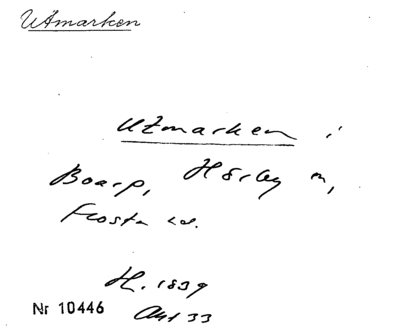 Utmarken
Utmarken i
Boarp, Hörby sn,
Frosta hd.
H. 1839
Akt 33
Nr 10446